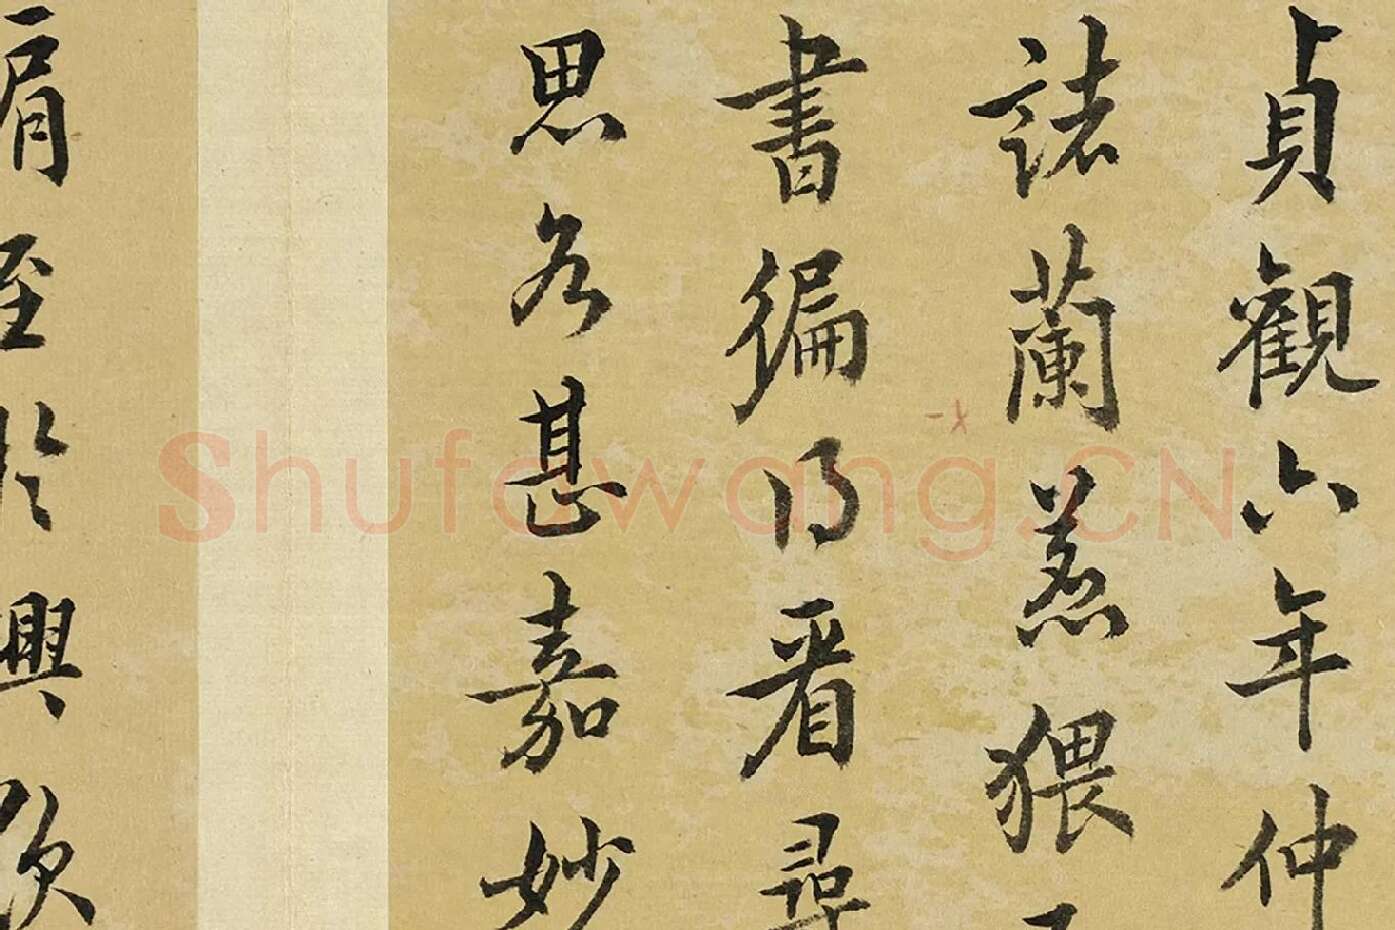 貞觀六年仲
諸蘭羔猥
書徧得看尋
思各甚嘉妙
肩至於興
Shufawang.CN